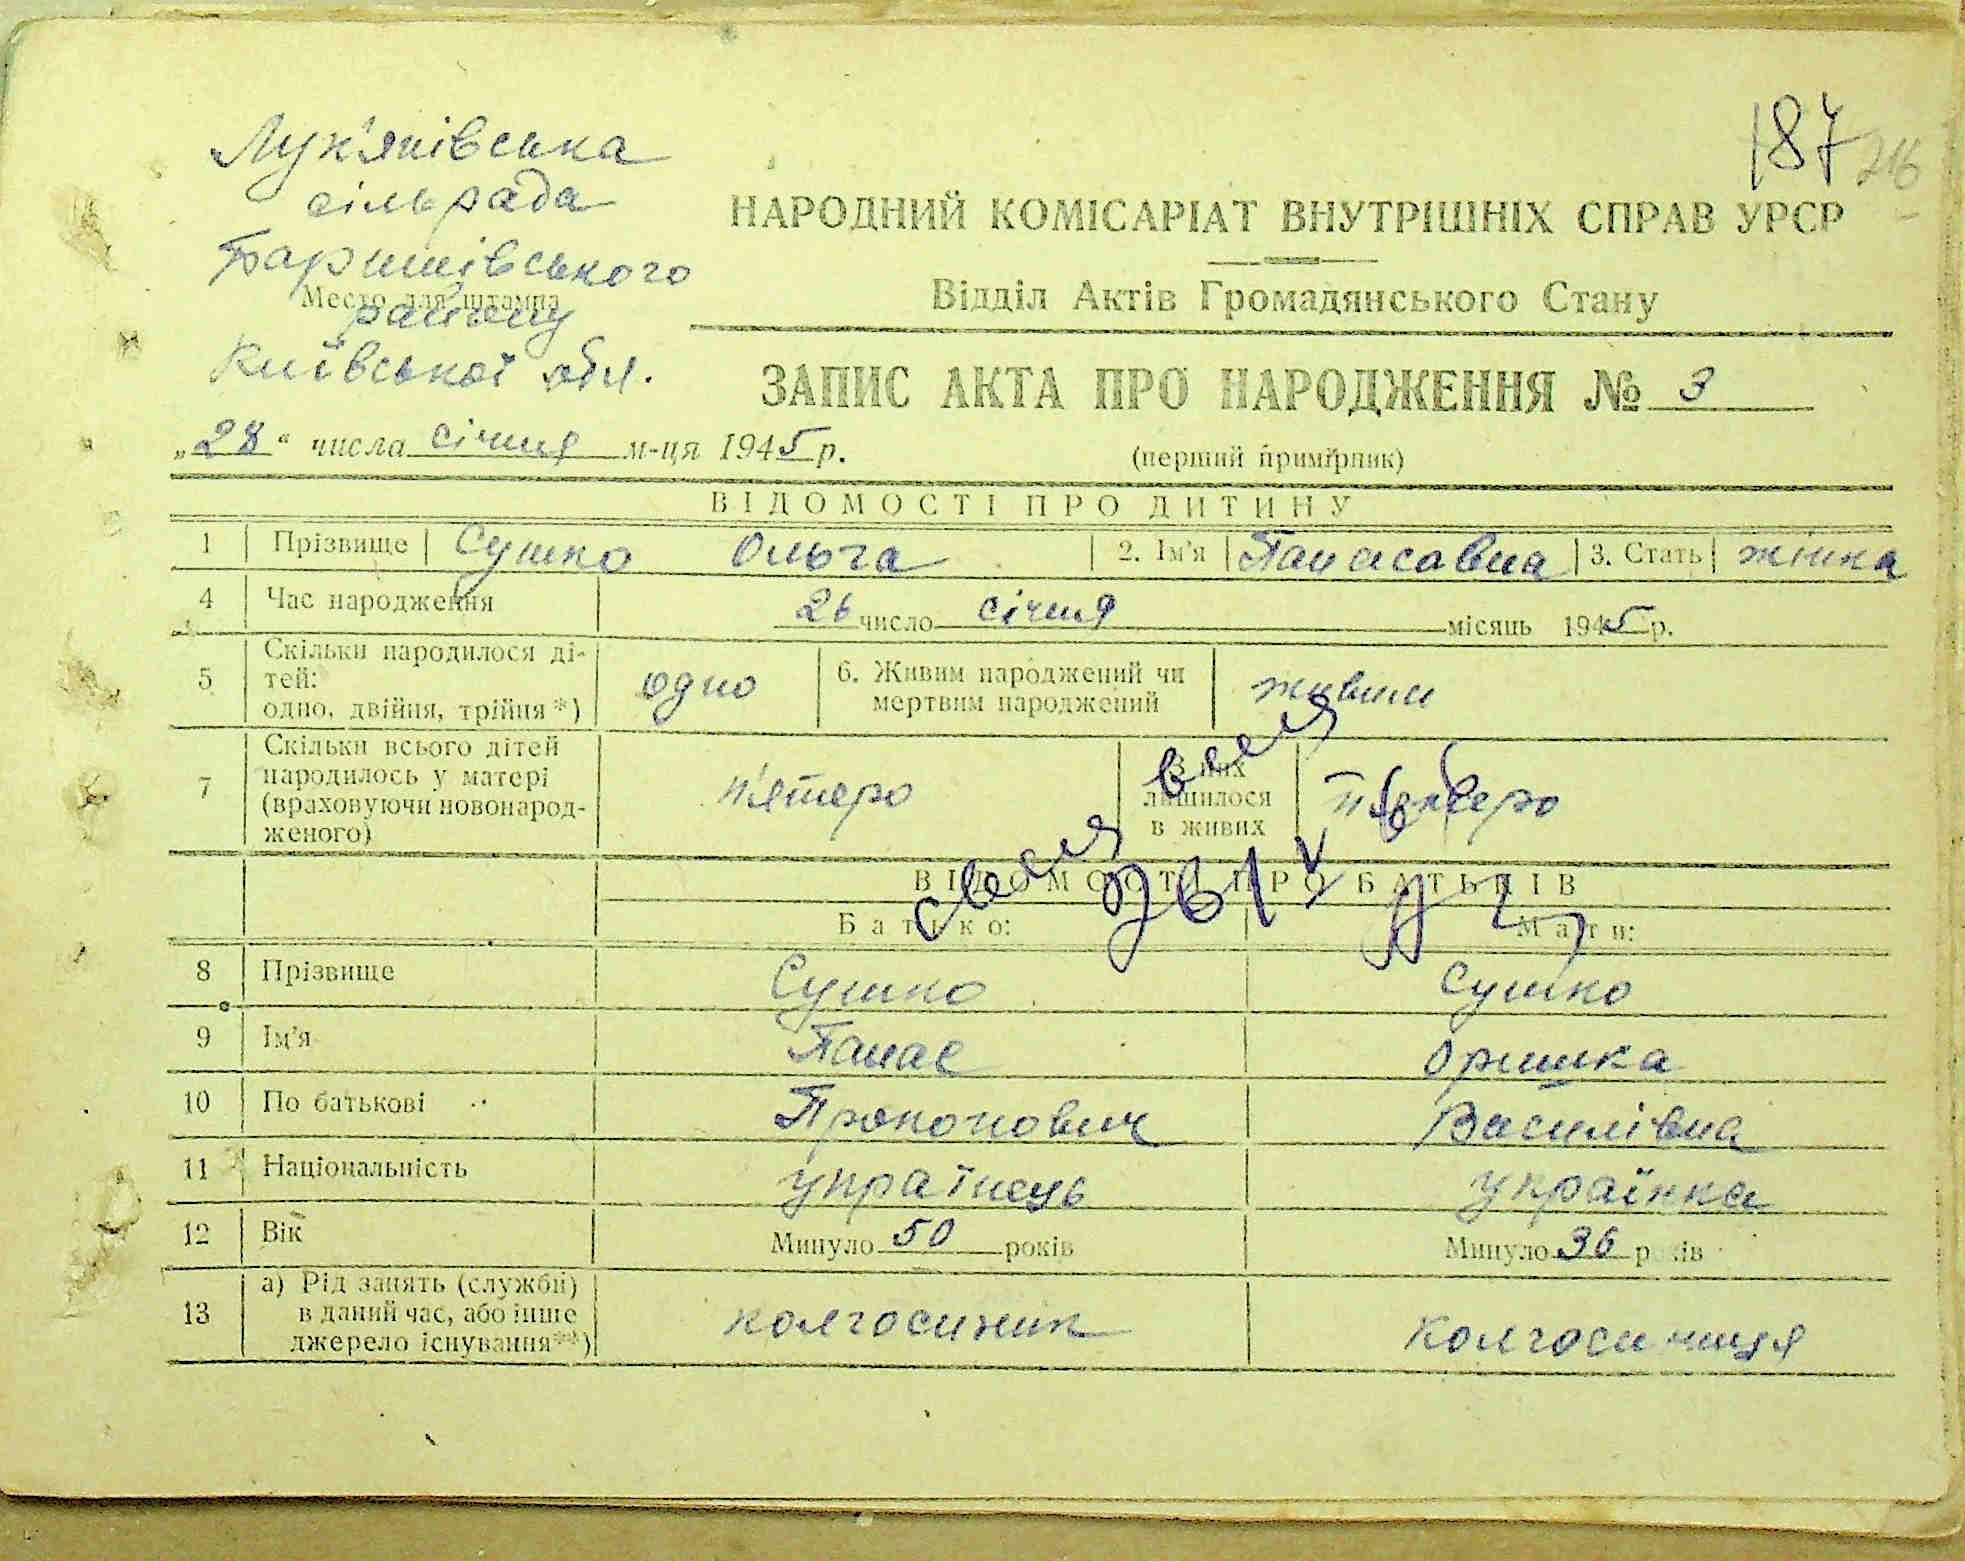 187
Лук'янівська
сільрада
Баришівського
Место для штампа
району
Київської обл.
НАРОДНИЙ КОМІСАРІАТ ВНУТРІШНІХ СПРАВ УРСР
Відділ Актів Громадянського Стану
ЗАПИС АКТА ПРО НАРОДЖЕННЯ № 3
„28“ числа січня м-ця 1945 р.
(перший примірник)
ВІДОМОСТІ ПРО ДИТИНУ
1 Прізвище Сушко Ольга 2. Ім'я Панасавна 3. Стать жінка
4 Час народження 26 число січня місяць 1945 р.
5 Скільки народилося ді-
тей:
одно, двійня, трійня *) одно 6. Живим народжений чи
мертвим народжений живим
7 Скільки всього дітей
народилось у матері
(враховуючи новонарод-
женого) п'ятеро З них
лишилося
в живих п'ятеро
ВІДОМОСТІ ПРО БАТЬКІВ
Батько: Мати:
8 Прізвище Сушко Сушко
9 Ім'я Панас Оришка
10 По батькові Прокопович Василівна
11 Національність українець українка
12 Вік Минуло 50 років Минуло 36 років
13 а) Рід занять (служби)
в даний час, або інше
джерело існування**) колгоспник колгоспниця